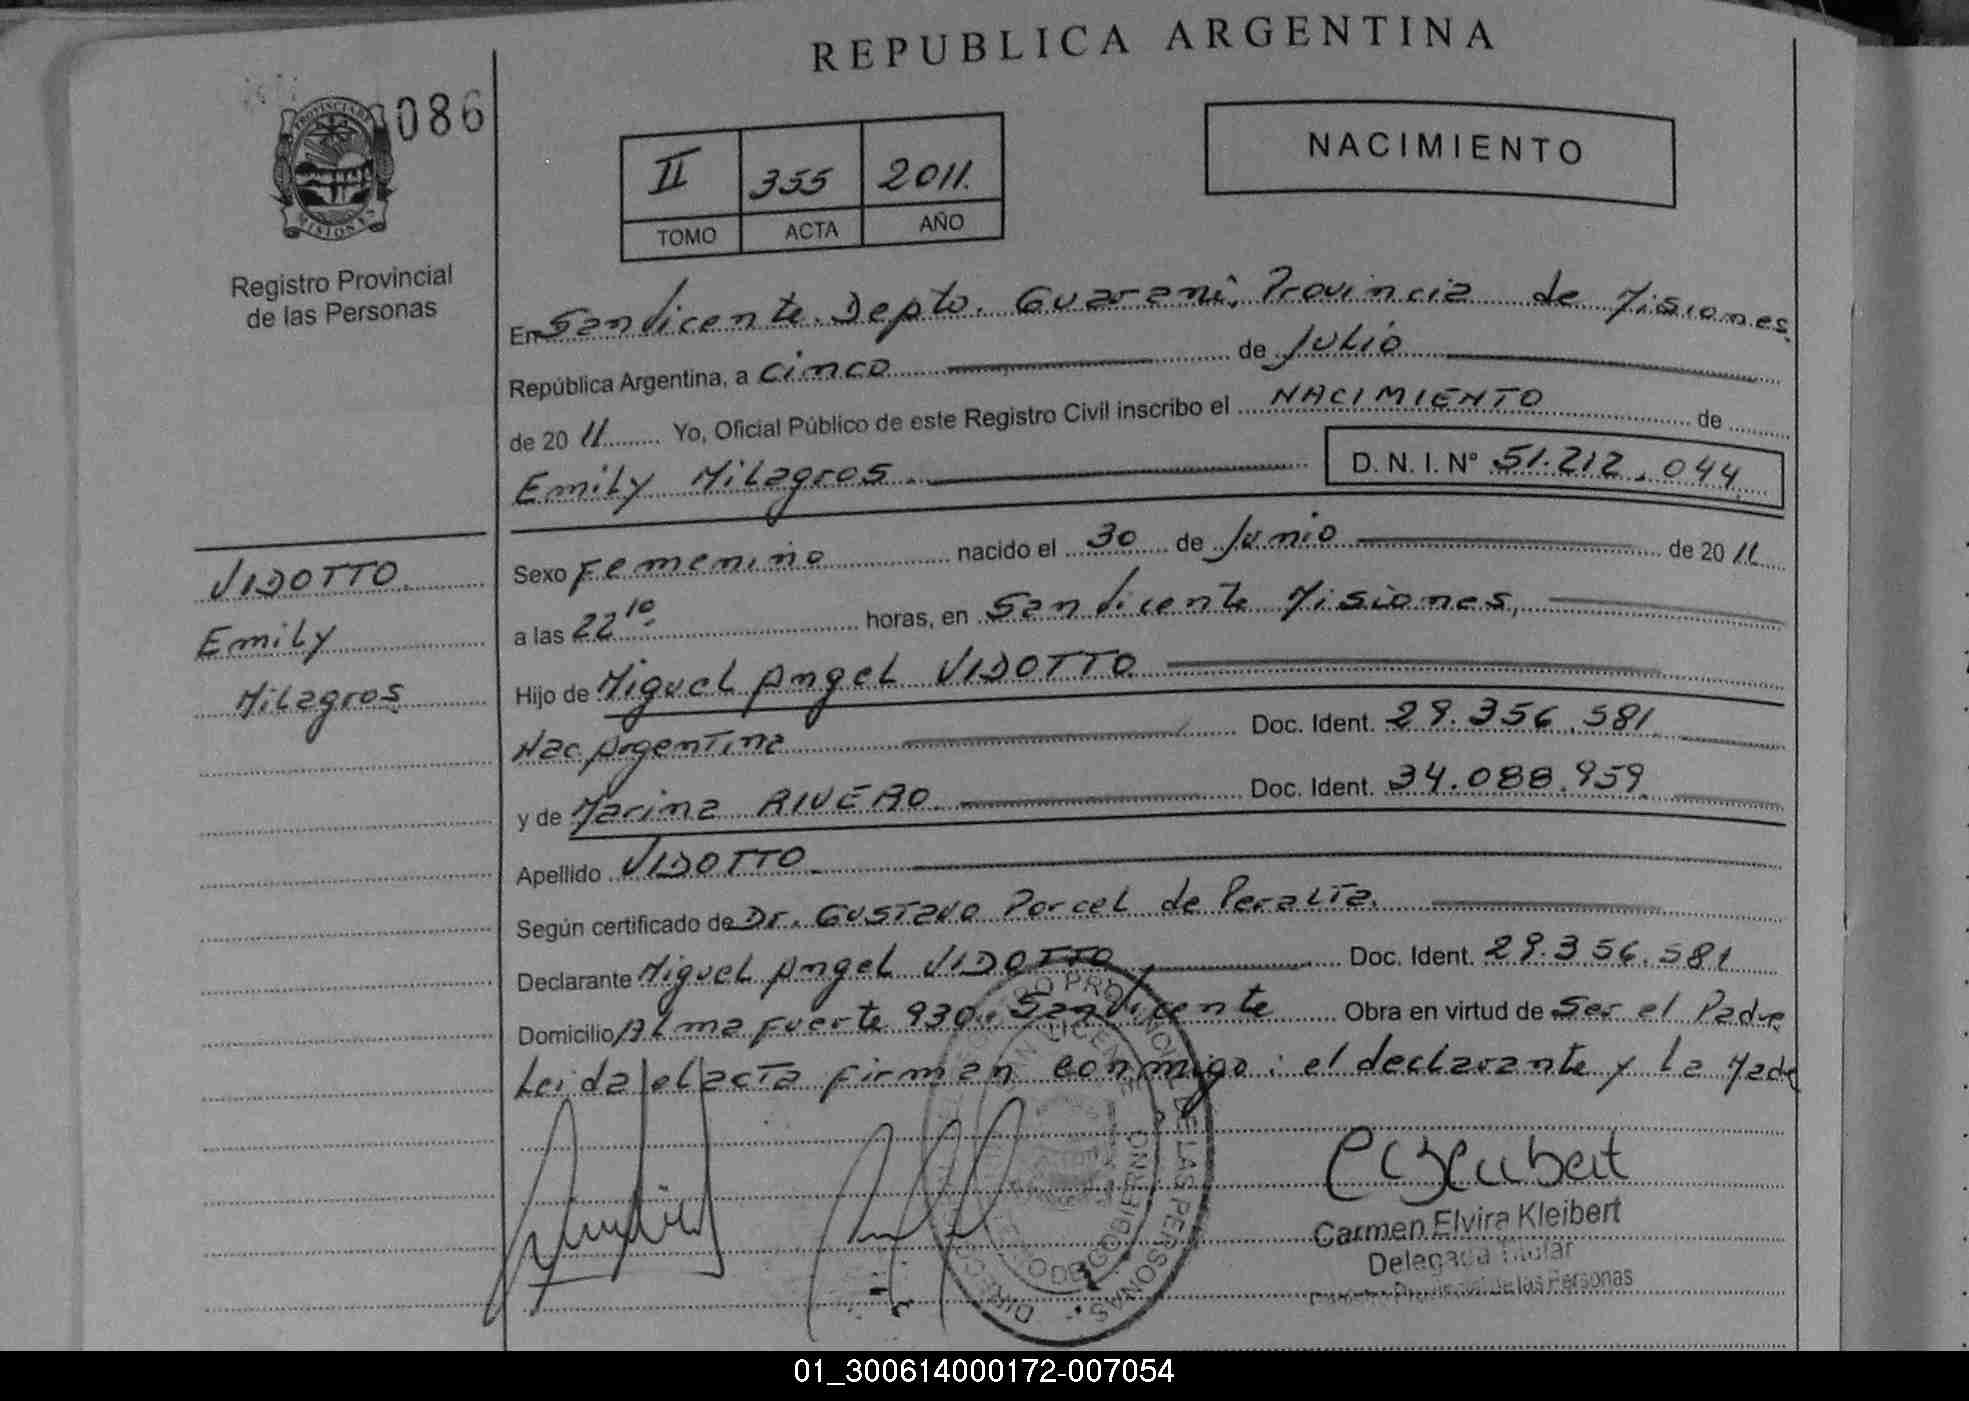 REPUBLICA ARGENTINA
086
PROVINCIA DE
MISIONES
Registro Provincial
de las Personas
II 355 2011.
TOMO ACTA AÑO
NACIMIENTO
En San Vicente. Depto. Guaraní, Provincia de Misiones
República Argentina, a cinco de Julio
de 20 11 Yo, Oficial Público de este Registro Civil inscribo el NACIMIENTO de
Emily Milagros. D. N. I. Nº 51.212.044
Sexo Femenino nacido el 30 de Junio de 20 11
a las 22 10. horas, en San Vicente Misiones,
Hijo de Miguel Angel VIDOTTO
Nac. Argentina Doc. Ident. 29.356.581
y de Marina RIVERO Doc. Ident. 34.088.959
Apellido VIDOTTO
Según certificado de Dr. Gustavo Porcel de Peralta.
Declarante Miguel Angel VIDOTTO Doc. Ident. 29.356.581
Domicilio Alma fuerte 930. San Vicente Obra en virtud de Ser el Padre
Leida el acta firman conmigo: el declarante y la Madre
VIDOTTO
Emily
Milagros
Carmen Elvira Kleibert
Delegada Titular
Registro Provincial de las Personas
01_300614000172-007054